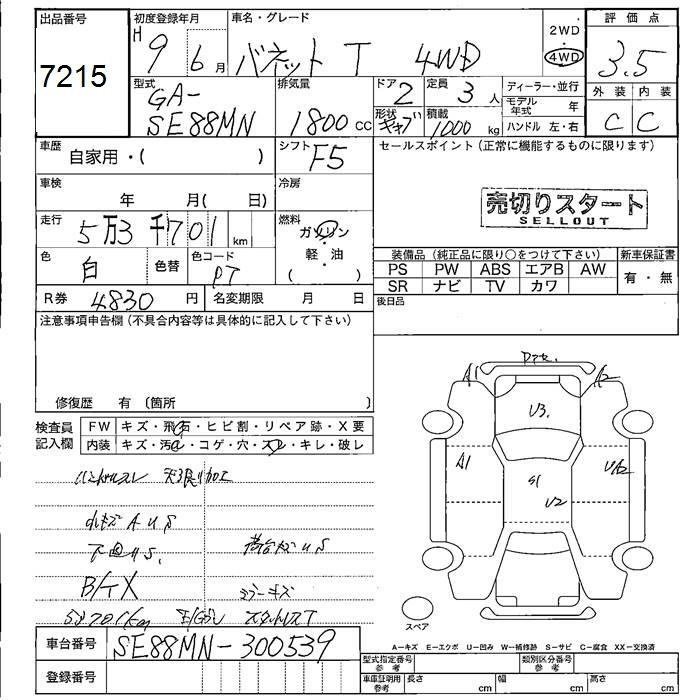 出品番号
7215
初度登録年月
H 9年 6月
車名・グレード
バネットT 4WD
2WD
・
4WD
評価点
3.5
外装 内装
C C
型式
GA-
SE88MN
排気量
1800cc
ドア
2
定員
3人
形状
積載
1000kg
ディーラー・並行
モデル年式 年
ハンドル 左・右
車歴
自家用・( )
シフト
F5
セールスポイント（正常に機能するものに限ります）
車検
年 月( 日)
冷房
売切りスタート
SELLOUT
走行
5万3千701km
燃料
ガソリン
・
軽・油
( )
色
白
色替
色コード
PT
装備品（純正品に限り○をつけて下さい）
新車保証書
PS PW ABS エアB AW
SR ナビ TV カワ
有・無
R券
4830円
名変期限 月 日
後日品
注意事項申告欄（不具合内容等は具体的に記入して下さい）
修復歴 有（箇所 ）
検査員記入欄
FW キズ・飛石・ヒビ割・リペア跡・X要
内装 キズ・汚れ・コゲ・穴・スレ・キレ・破レ
ハンドルスレ
小キズAUS
下回りS.
荷台キズUS
ミラーキズ
A1
A2
U3.
A1
S1
U2
UA2
スペア
A－キズ E－エクボ U－凹み W－補修跡 S－サビ C－腐食 XX－交換済
車台番号
SE88MN-300539
登録番号
型式指定番号 参考
類別区分番号 参考
車庫証明用 参考
長さ cm
幅 cm
高さ cm